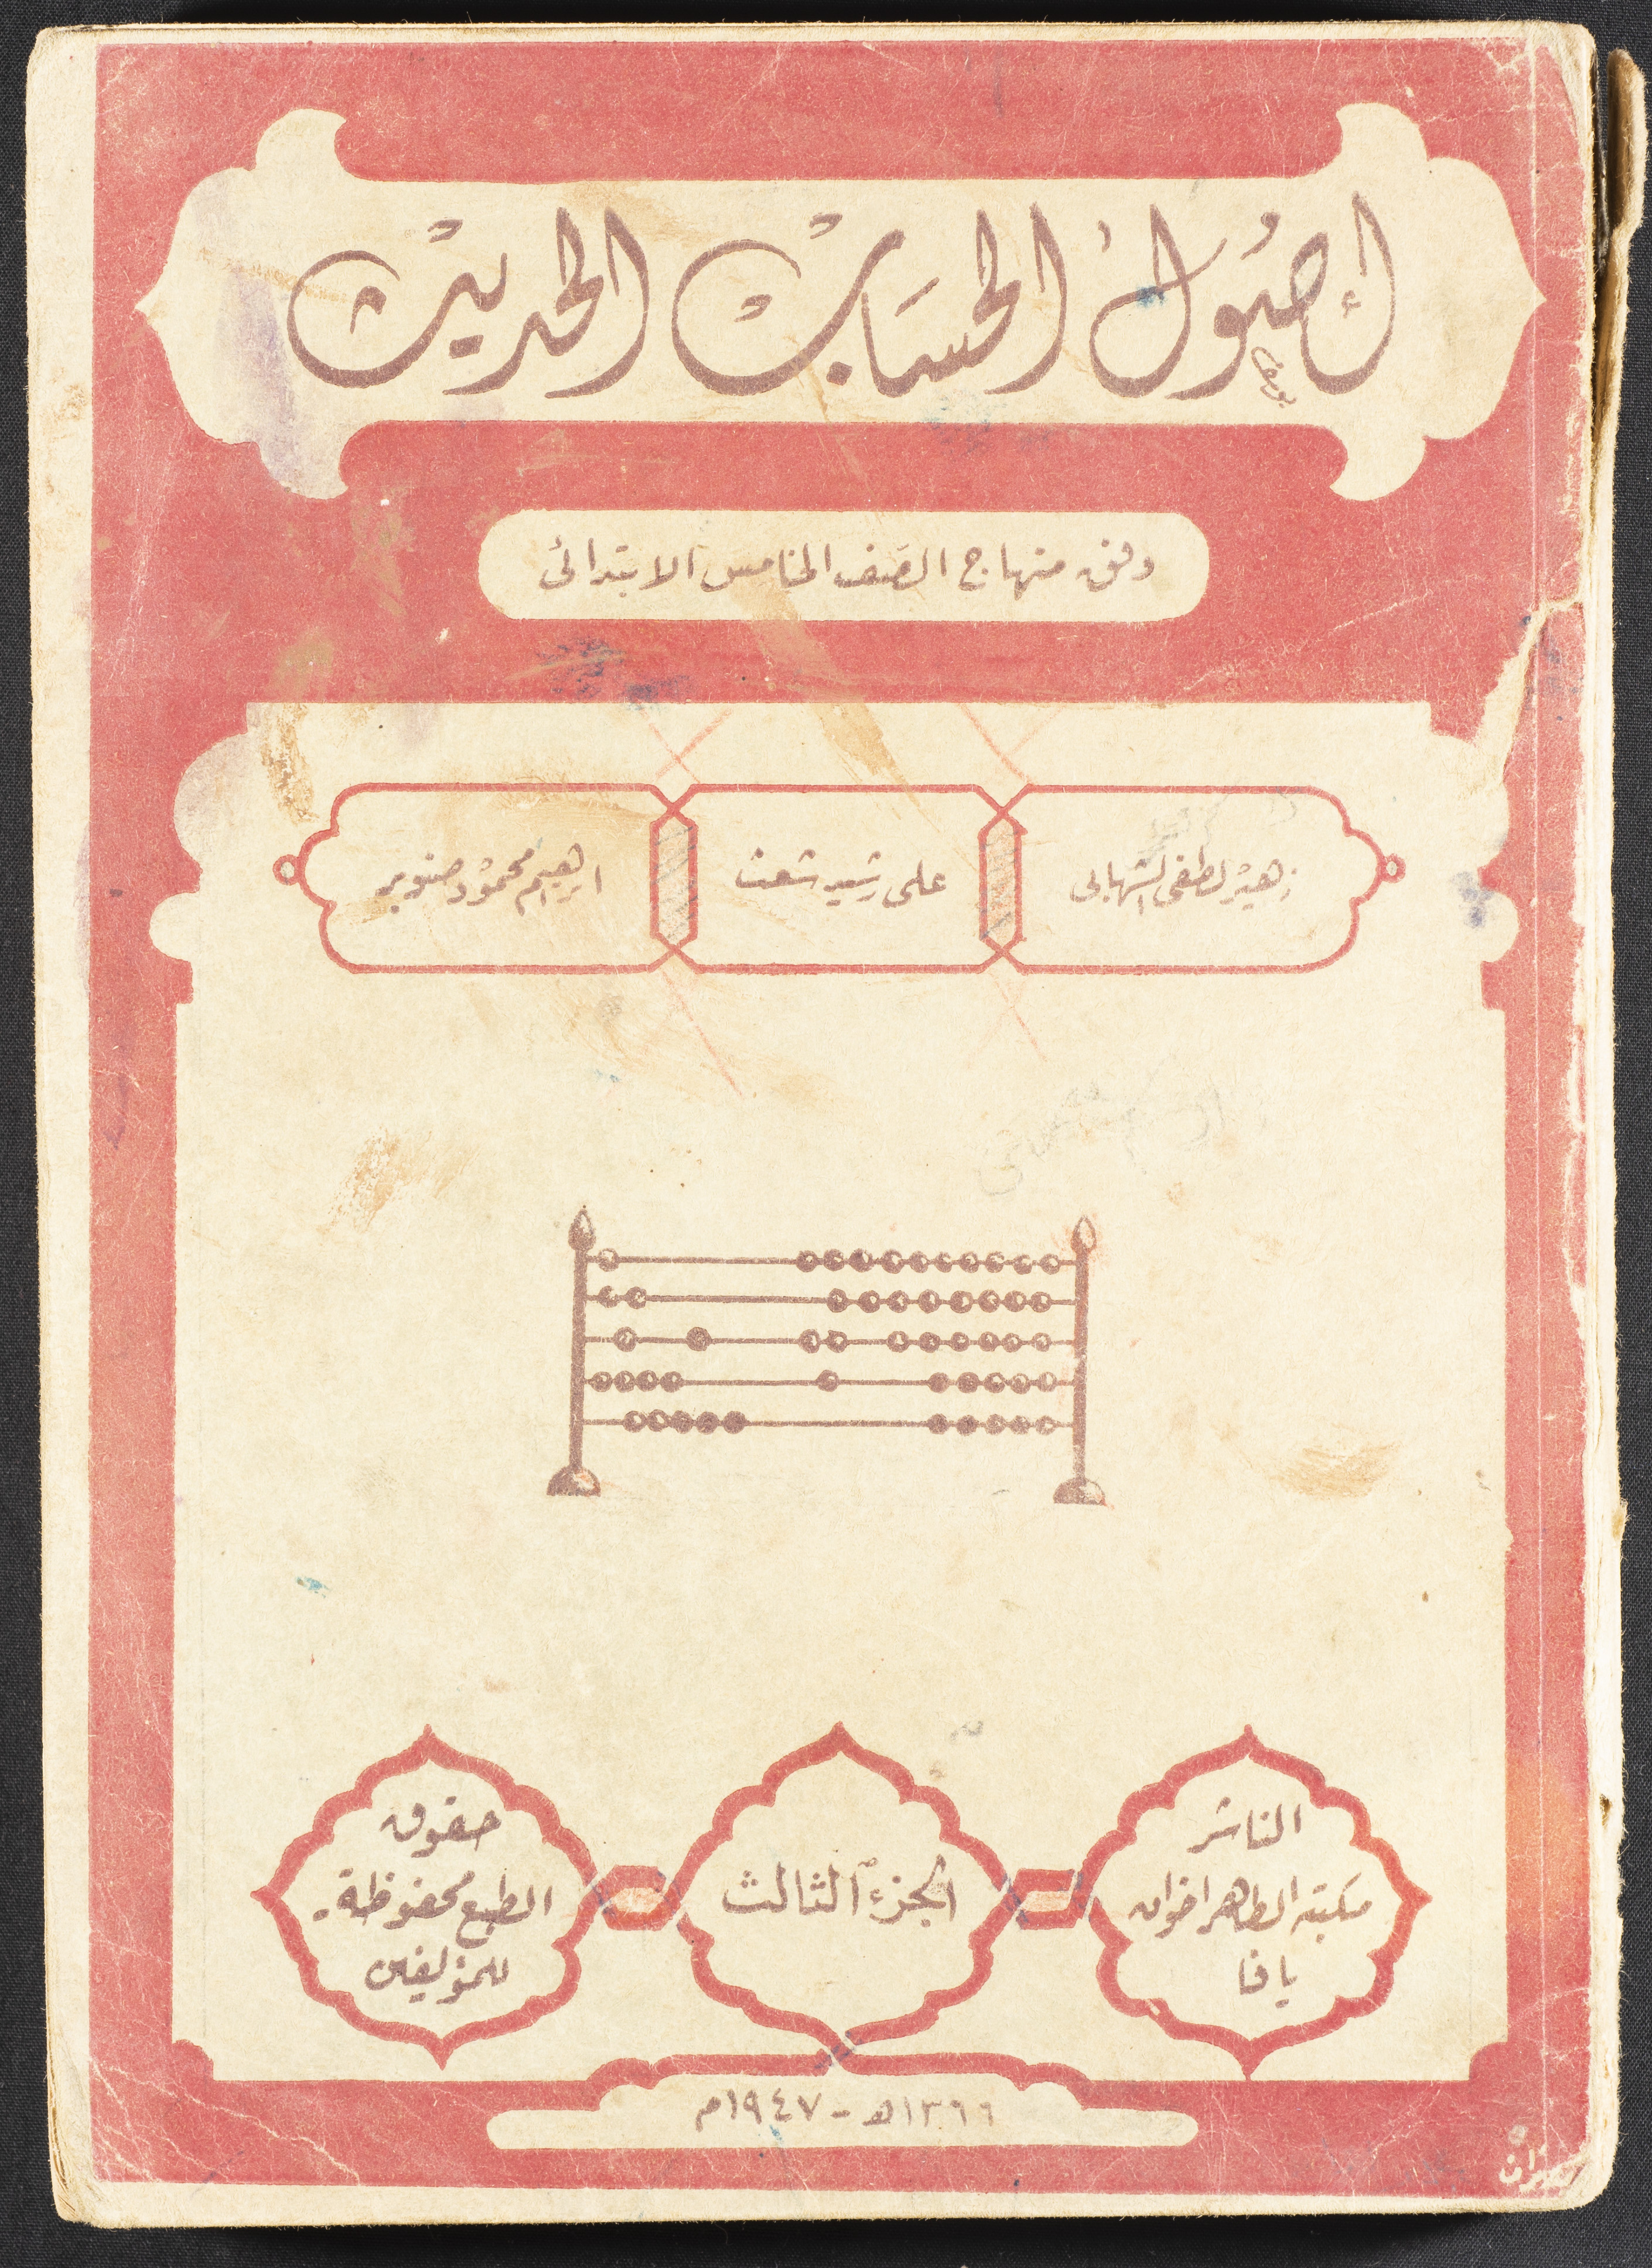 أصول الحساب الحديث
وفق منهاج الصف الخامس الابتدائي
زهير لطفي الشهابي
علي رشيد شعث
ابرهيم محمود صنوبر
الناشر
مكتبة الطاهر اخوان
يافا
الجزء الثالث
حقوق
الطبع محفوظة
للمؤلفين
١٣٦٦هـ - ١٩٤٧م